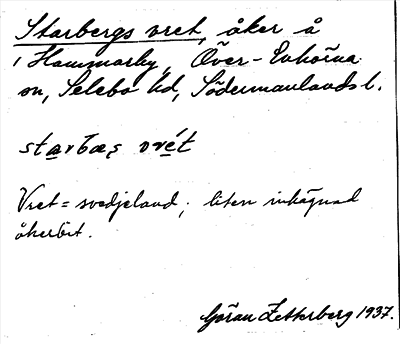 Starbergs vret, åker å
Hammarby, Över-Enhörna
sn, Selebo hd, Södermanlands l.
starbæs vrét
Vret = svedjeland; liten inhägnad
åkerbit.
Göran Zetterberg 1937.